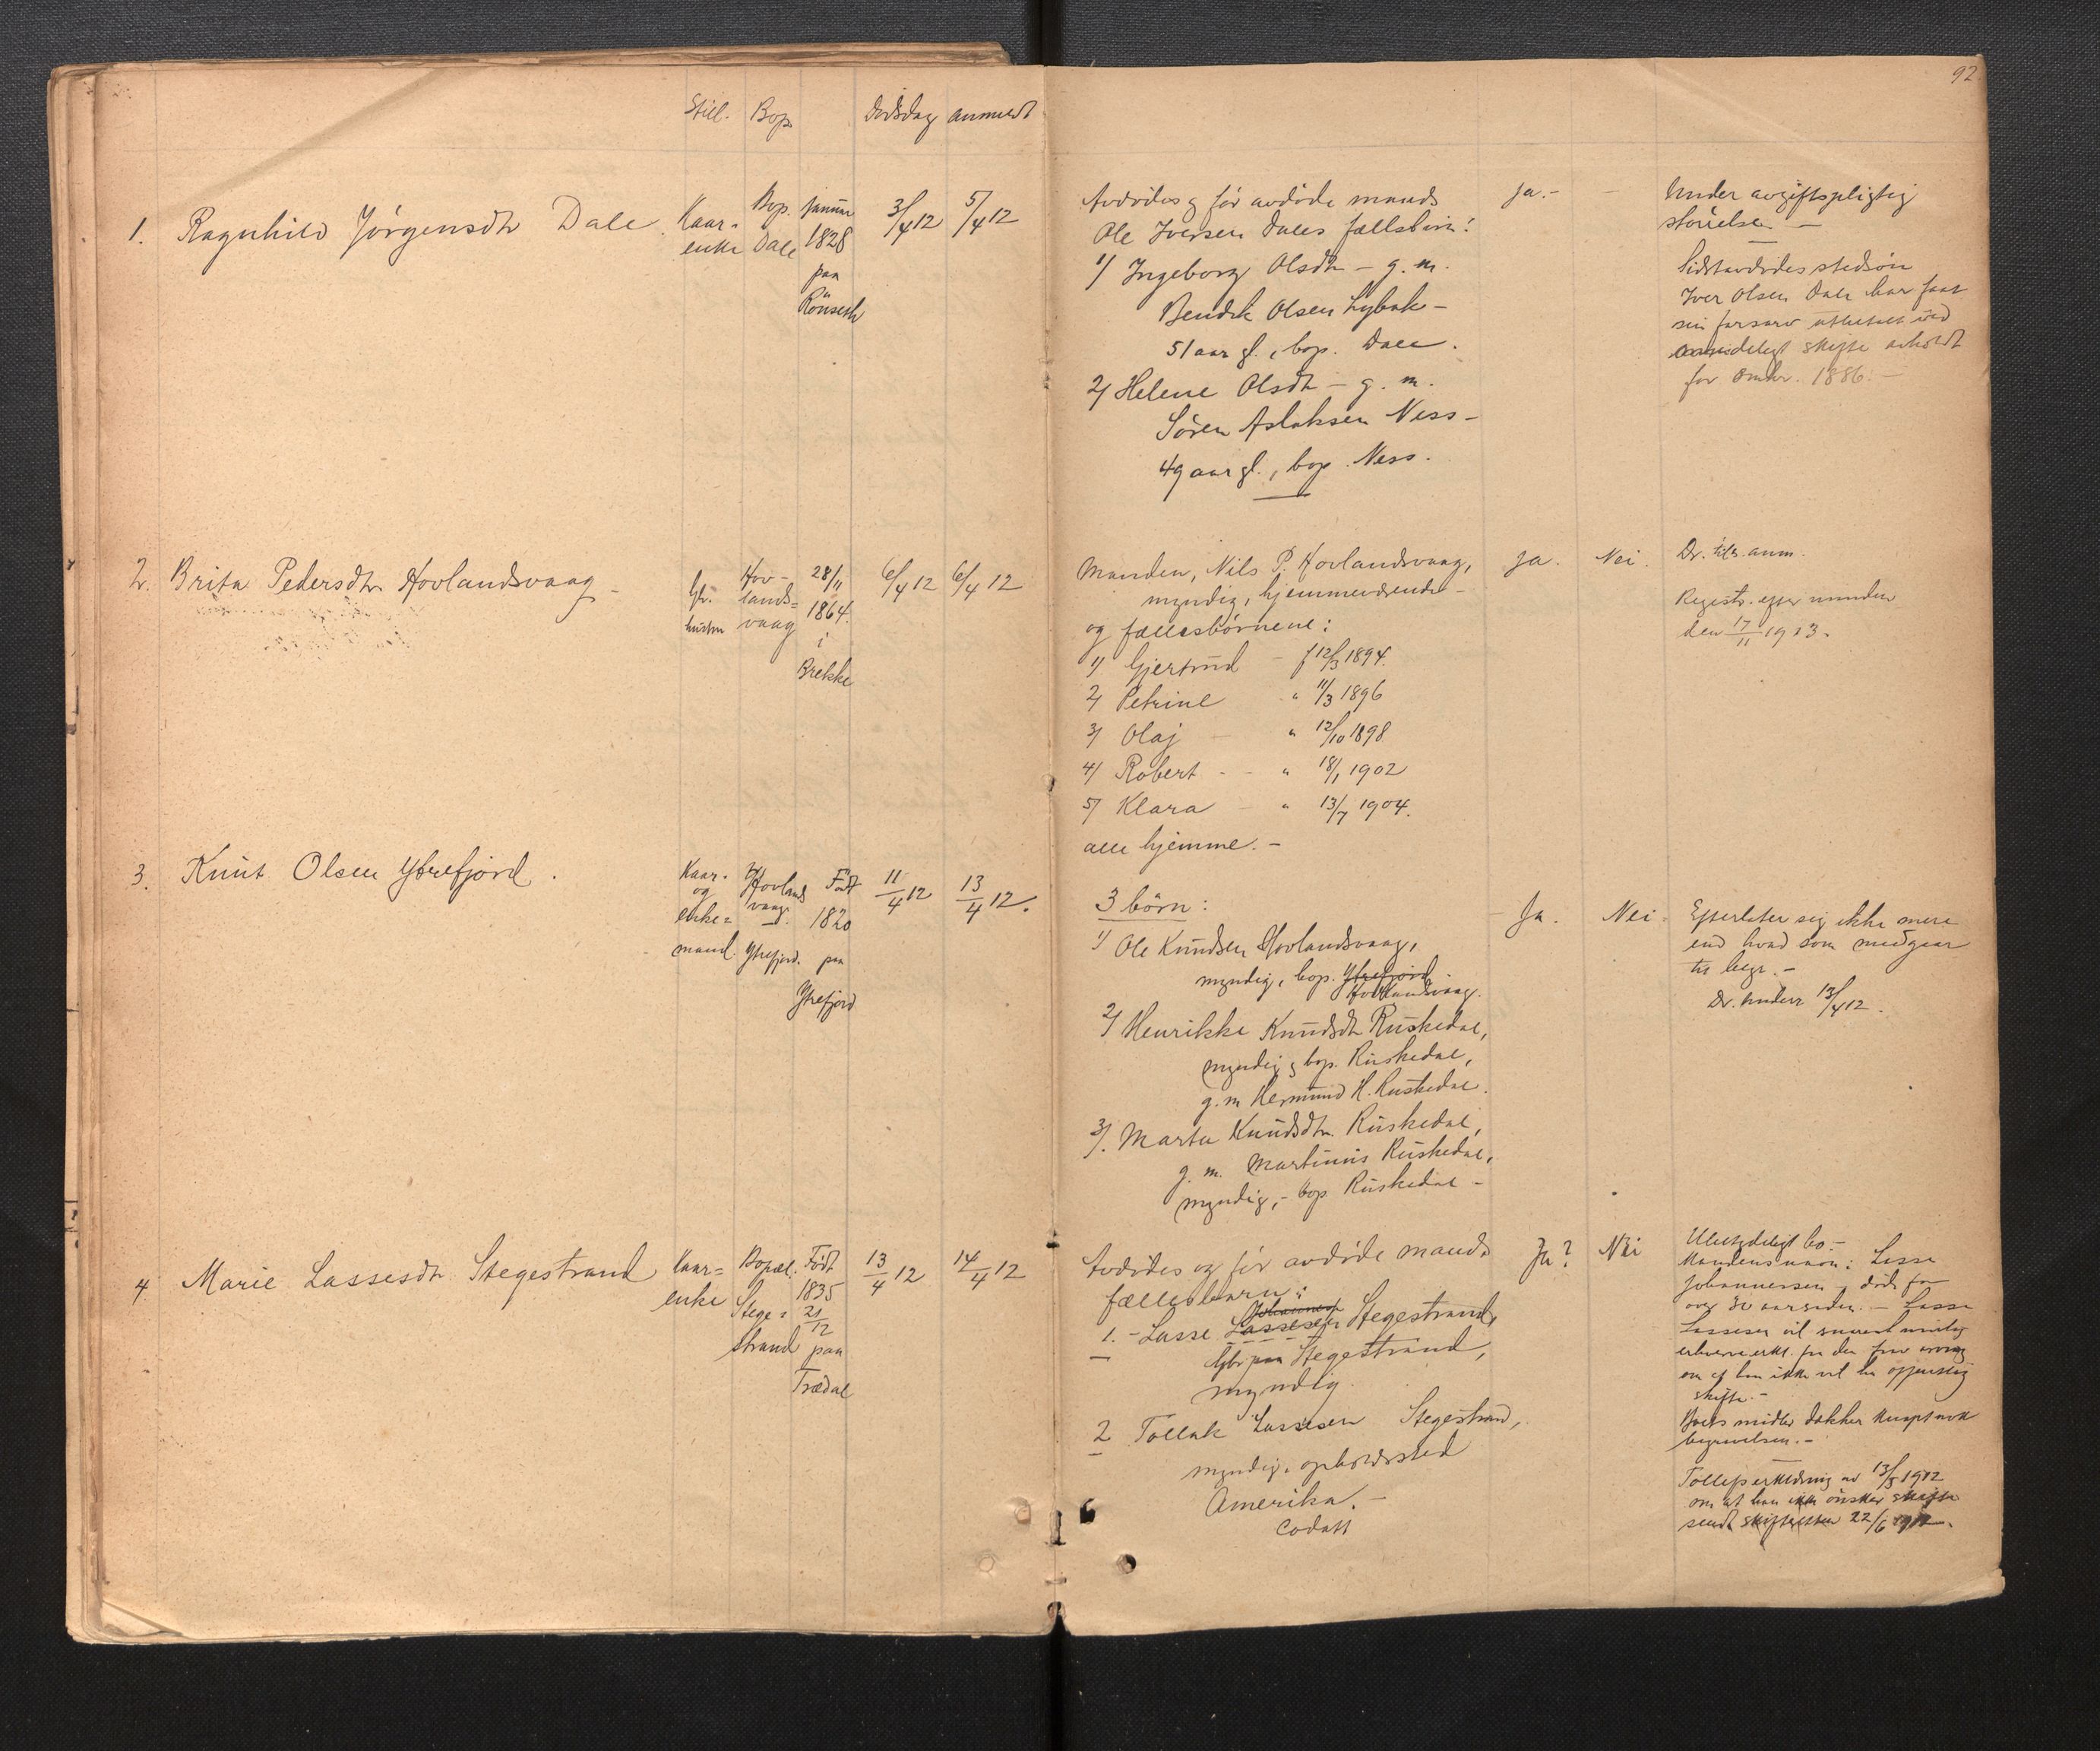 92
Still. Bop. Dødsdag anmeldt
1. Ragnhild Jörgensdtr Dale. Kaar= Bop. januar 3/4 12 5/4 12
enke Dale 1828
paa
Rönseth
Avdödes og för avdöde mands Ja.- -
Ole Iversen Dales fællsbørn:
1/ Ingeborg Olsdtr - g. m.
Bendik Olsen Lybak -
51 aar gl., bop. Dale.
2/ Helene Olsdtr - g. m.
Sören Aslaksen Ness -
49 aar gl., bop. Ness.
Under avgiftspligtig
störrelse -
Sidstavdödes stedsön
Iver Olsen Dale har faat
sin farsarv utbetalt ved
skifte avholdt
for 1886. -
2. Brita Pedersdtr Hovlandsvaag - Gbr. Hov- 28/11 6/4 12 6/4 12
hustru lands= 1864.
vaag i
Brekke
Manden, Nils P. Hovlandsvaag, Ja. Nei.
myndig, hjemmeværende -
og fællesbörnene:
1/ Gjertrud - f 12/3 1894.
2/ Petrine " 11/3 1896
3/ Olaf - " 12/10 1898
4/ Robert - - " 18/1 1902
5/ Klara - " 13/7 1904.
alle hjemme. -
Dr. anm.
Registr. efter manden
den 17/11 1913.
3. Knut Olsen Ytrefjord. Kaar- Hovlands Födt 11/4 12 13/4 12.
og vaag. 1820
enke= Ytrefjord. paa
mand. Ytrefjord
3 börn: Ja. Nei.
1/ Ole Knudsen Hovlandsvaag,
myndig, bop. Ytrefjord
Hovlandsvaag.
2/ Henrikke Knudsdtr Ruskedal,
myndig, bop. Ruskedal,
g. m Hermund H. Ruskedal.
3/. Marta Knudsdtr. Ruskedal,
g. m. Martinus Ruskedal,
myndig, - bop. Ruskedal -
Efterlater sig ikke mere
end hvad som medgaar
til begr. -
Dr. underr 13/4 12.
4. Marie Lassesdtr. Stegestrand Kaar= Bopæl. Födt 13/4 12 14/4 12
enke Stege= 1835
strand 21/12
paa
Trædal
Avdödes og för avdöde mands Ja? Nei
fællesbarn:
1. - Lasse Lassesen Stegestrand,
Gbr paa Stegestrand,
myndig.
2 Tollak Lassesen Stegestrand,
myndig, opholdssted
Amerika. -
Codatt
Ubetydeligt bo. -
Mandens navn: Lasse
Johannessen, död for
over 30 aar siden. - Lasse
Lassesen vil snarest mulig
erhverve erkl. fra den
om at han ikke vil ha offentlig
skifte. -
Boets midler dækker knapt nok
begravelsen. -
Tollefs erklæring av 13/5 1912
om at han ikke önsker skifte
sendt skifteretten 22/6 1912.